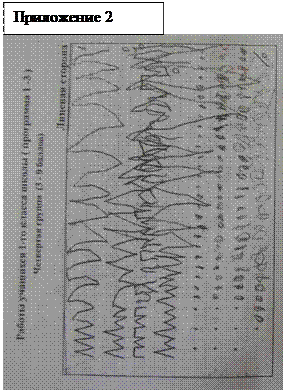 Приложение 2
Работы учащихся 1-го класса школы ( программа 1 -3 )
Четвертая группа (3 - 0 балла)
Лицевая сторона